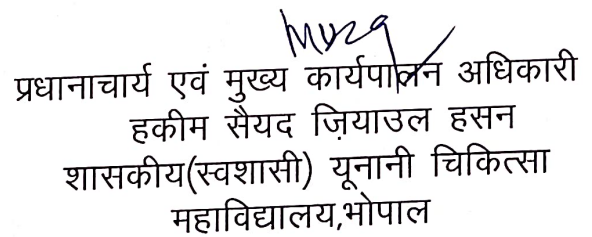 प्रधानाचार्य एवं मुख्य कार्यपालन अधिकारी
हकीम सैयद ज़ियाउल हसन
शासकीय(स्वशासी) यूनानी चिकित्सा
महाविद्यालय,भोपाल